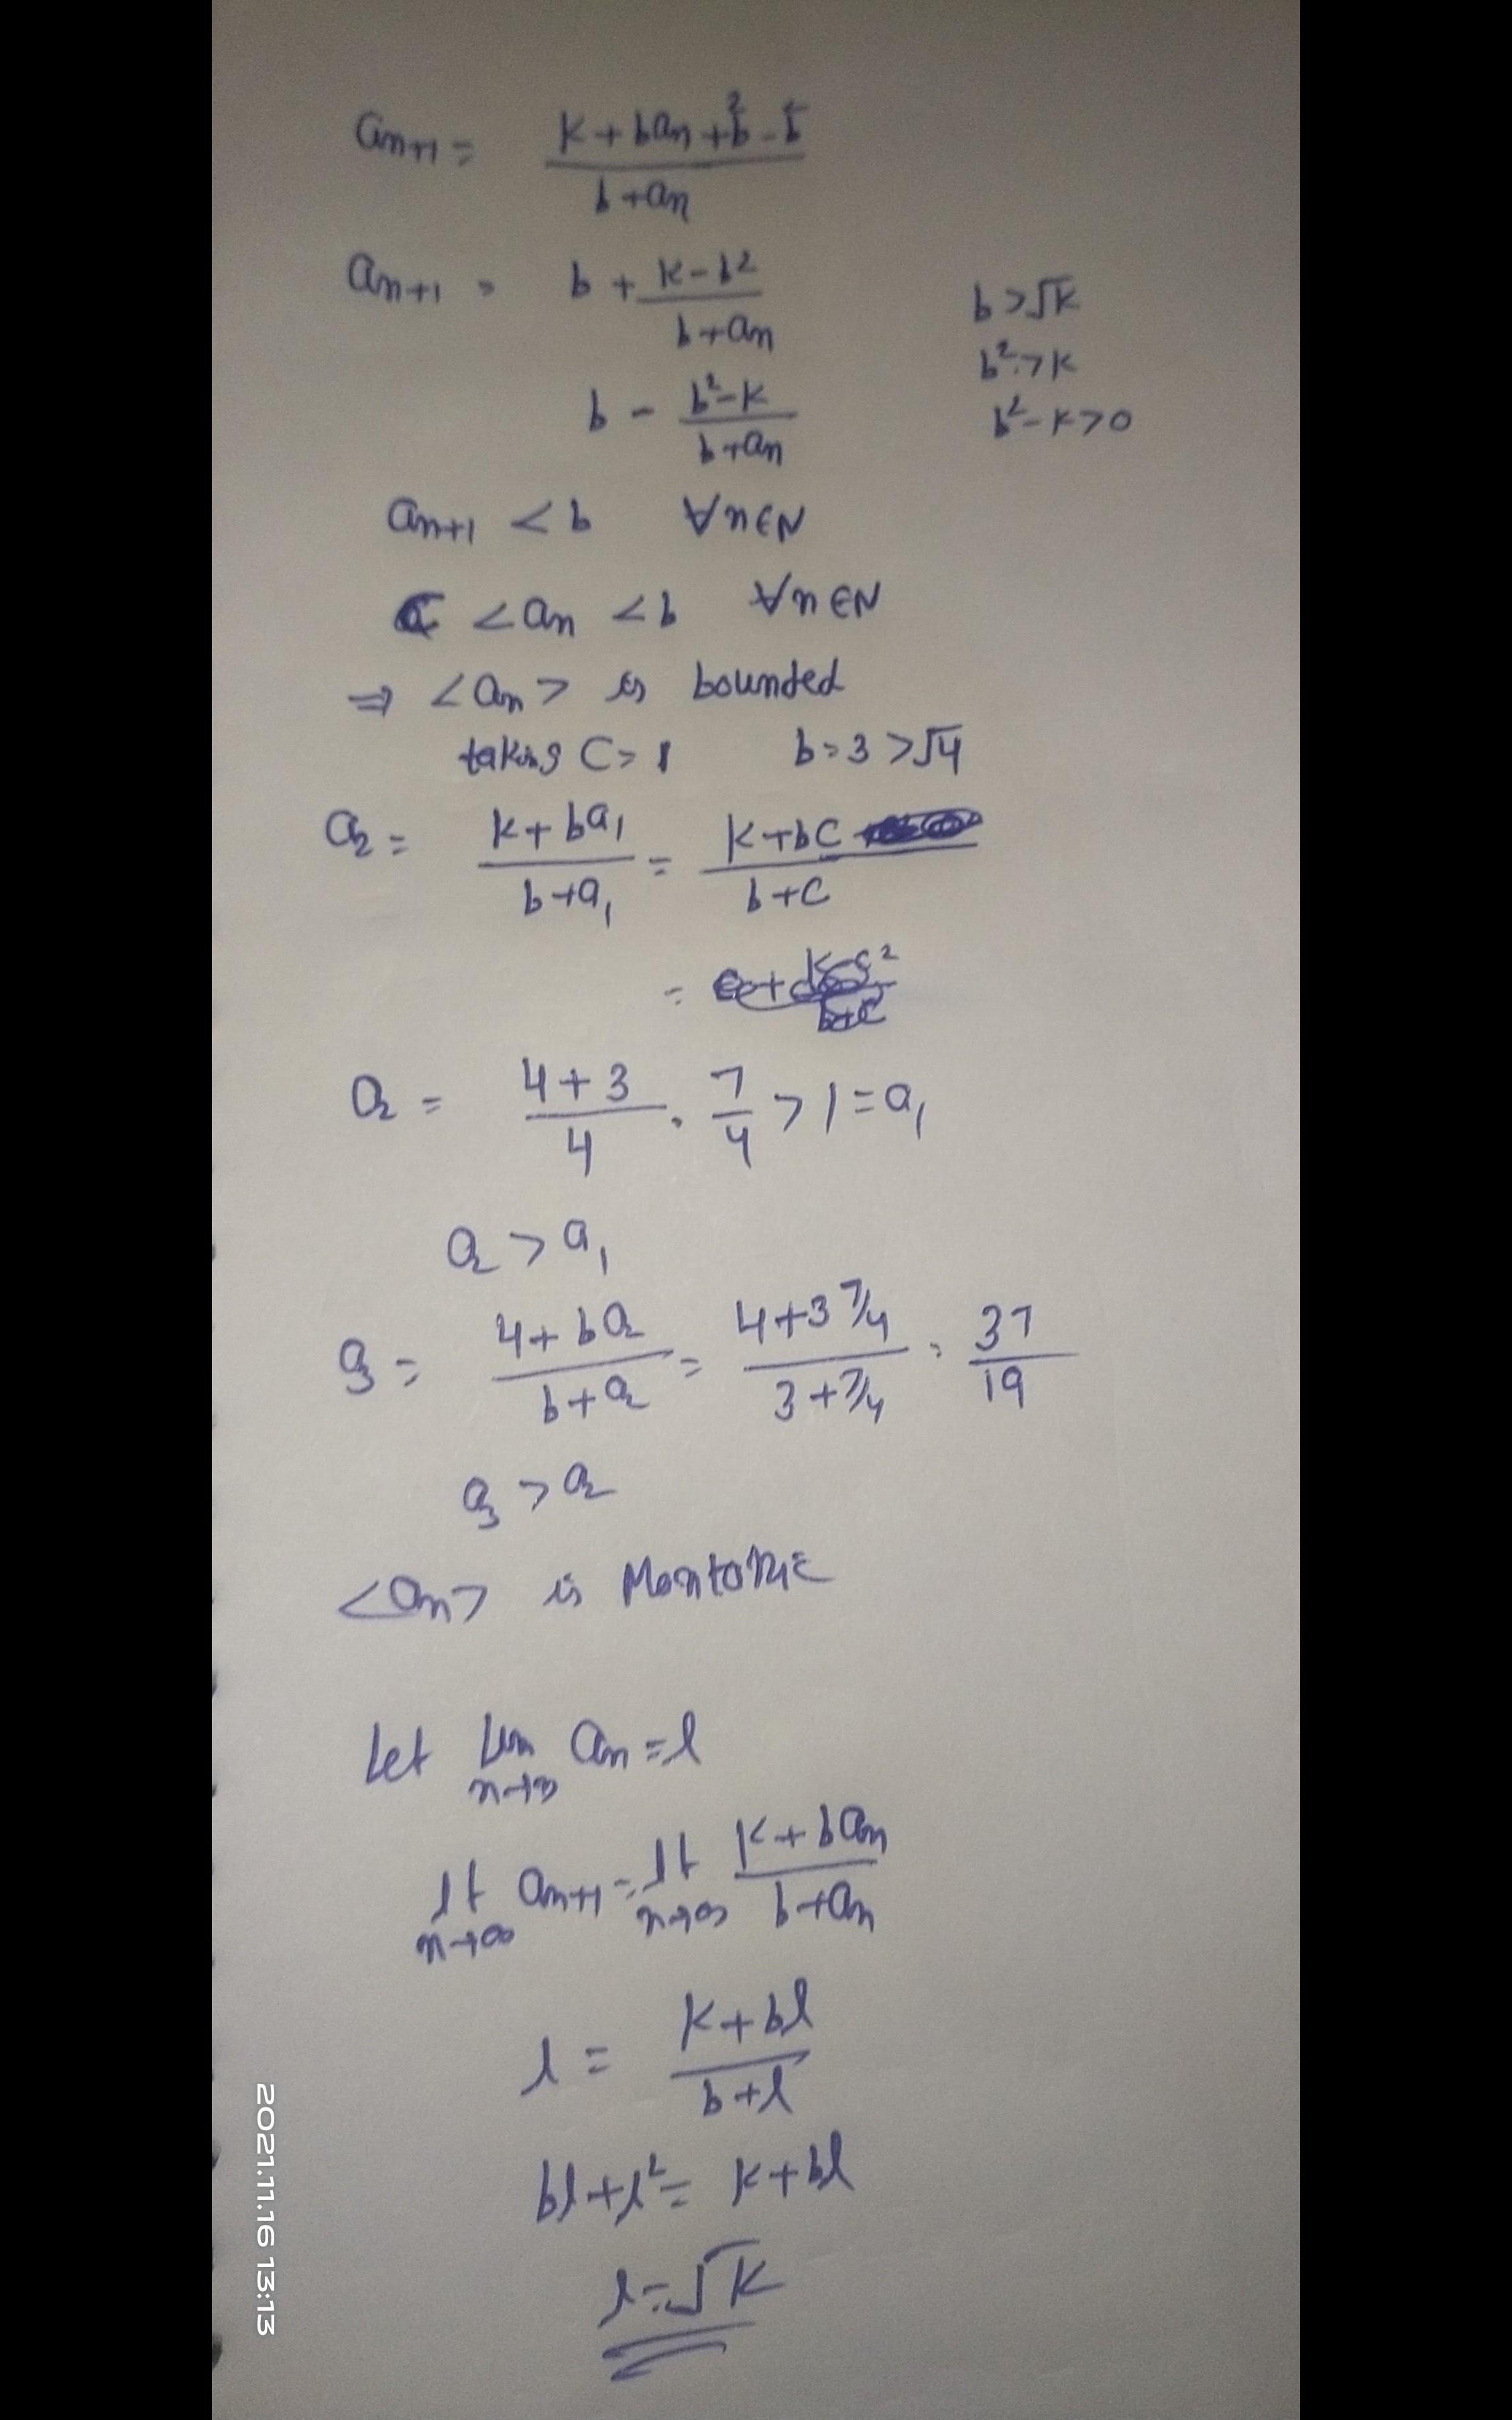 an+1 = (k + ban + b² - b²)/(b + an)
an+1 = b + (k - b²)/(b + an)
b > √k
b² > k
b - (b² - k)/(b + an)
b² - k > 0
an+1 < b ∀ n ∈ N
C < an < b ∀ n ∈ N
⇒ <an> is bounded
taking C = 1 b = 3 > √4
a2 = (k + ba1)/(b + a1) = (k + bC)/(b + C)
a2 = (4 + 3)/4 = 7/4 > 1 = a1
a2 > a1
a3 = (4 + ba2)/(b + a2) = (4 + 3 7/4)/(3 + 7/4) = 37/19
a3 > a2
<an> is Montonic
Let Lim n→∞ an = l
lt n→∞ an+1 = lt n→∞ (k + ban)/(b + an)
l = (k + bl)/(b + l)
bl + l² = k + bl
l = √k
2021.11.16 13:13